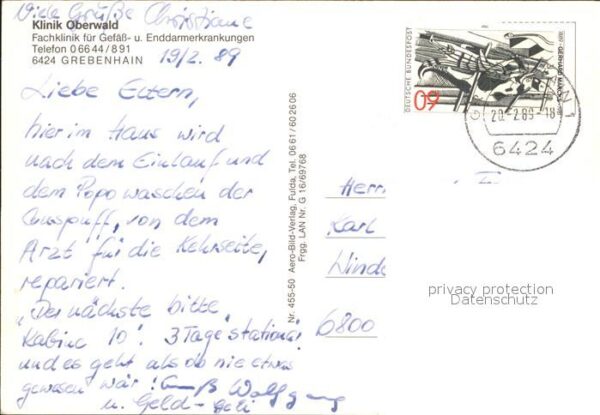 Viele Grüße Christiane
Klinik Oberwald
Fachklinik für Gefäß- u. Enddarmerkrankungen
Telefon 0 66 44 / 8 91
6424 GREBENHAIN
19/2. 89
Liebe Eltern,
hier im Haus wird
nach dem Einlauf und
dem Popowaschen der
Auspuff, von dem
Arzt für die Kehrseite,
repariert.
"Der nächste bitte,
Kabine 10! 3 Tage stationär
und es geht als ob nie etwas
gewesen wär! Gruß Wolfgang
u. Geld-
Nr. 455-50 Aero-Bild-Verlag, Fulda, Tel. 06 61 / 60 26 06
Frgg. LAN Nr. G 16/69768
DEUTSCHE BUNDESPOST
60
20.-2.89-18
6424
Herrn
Karl
6800
privacy protection
Datenschutz